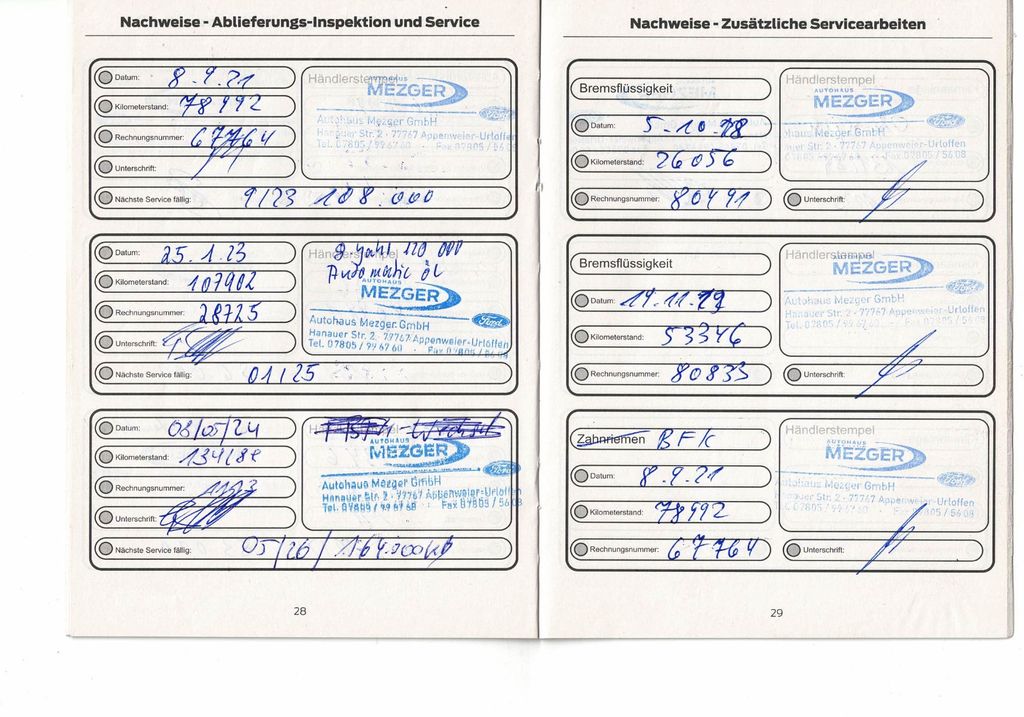 Nachweise - Ablieferungs-Inspektion und Service
Datum: 8.9.21
Kilometerstand: 78992
Rechnungsnummer: 67764
Unterschrift:
Nächste Service fällig: 9/23 108.000
Händlerstempel
AUTOHAUS
MEZGER
Autohaus Mezger GmbH
Hanauer Str. 2 - 77767 Appenweier-Urloffen
Tel. 07805 / 99 67 60 - Fax 07805 / 56 08
Datum: 25.1.23
Kilometerstand: 107902
Rechnungsnummer: 28725
Unterschrift:
Nächste Service fällig: 01/25
Händlerstempel
120 000
Automatic öl
AUTOHAUS
MEZGER
Ford
Autohaus Mezger GmbH
Hanauer Str. 2 - 77767 Appenweier-Urloffen
Tel. 07805 / 99 67 60 - Fax 07805 / 56 08
Datum: 08/05/24
Kilometerstand:
Rechnungsnummer:
Unterschrift:
Nächste Service fällig: 05/26 / 164.000
AUTOHAUS
MEZGER
Ford
Autohaus Mezger GmbH
Hanauer Str. 2 - 77767 Appenweier-Urloffen
Tel. 07805 / 99 67 60 - Fax 07805 / 56 08
28
Nachweise - Zusätzliche Servicearbeiten
Bremsflüssigkeit
Datum: 5.10.18
Kilometerstand: 26056
Rechnungsnummer: 80491
Händlerstempel
AUTOHAUS
MEZGER
Ford
Mezger GmbH
Str. 2 - 77767 Appenweier-Urloffen
Fax 07805 / 56 08
Unterschrift:
Bremsflüssigkeit
Datum: 14.11.19
Kilometerstand: 53346
Rechnungsnummer: 80833
Händlerstempel
AUTOHAUS
MEZGER
Ford
Autohaus Mezger GmbH
Hanauer Str. 2 - 77767 Appenweier-Urloffen
Tel. 07805 / 99 67 60 - Fax 07805 / 56 08
Unterschrift:
Zahnriemen BFK
Datum: 8.9.21
Kilometerstand: 78992
Rechnungsnummer: 67764
Händlerstempel
AUTOHAUS
MEZGER
Ford
Autohaus Mezger GmbH
Hanauer Str. 2 - 77767 Appenweier-Urloffen
07805 / 99 67 60 - Fax 07805 / 56 08
Unterschrift:
29